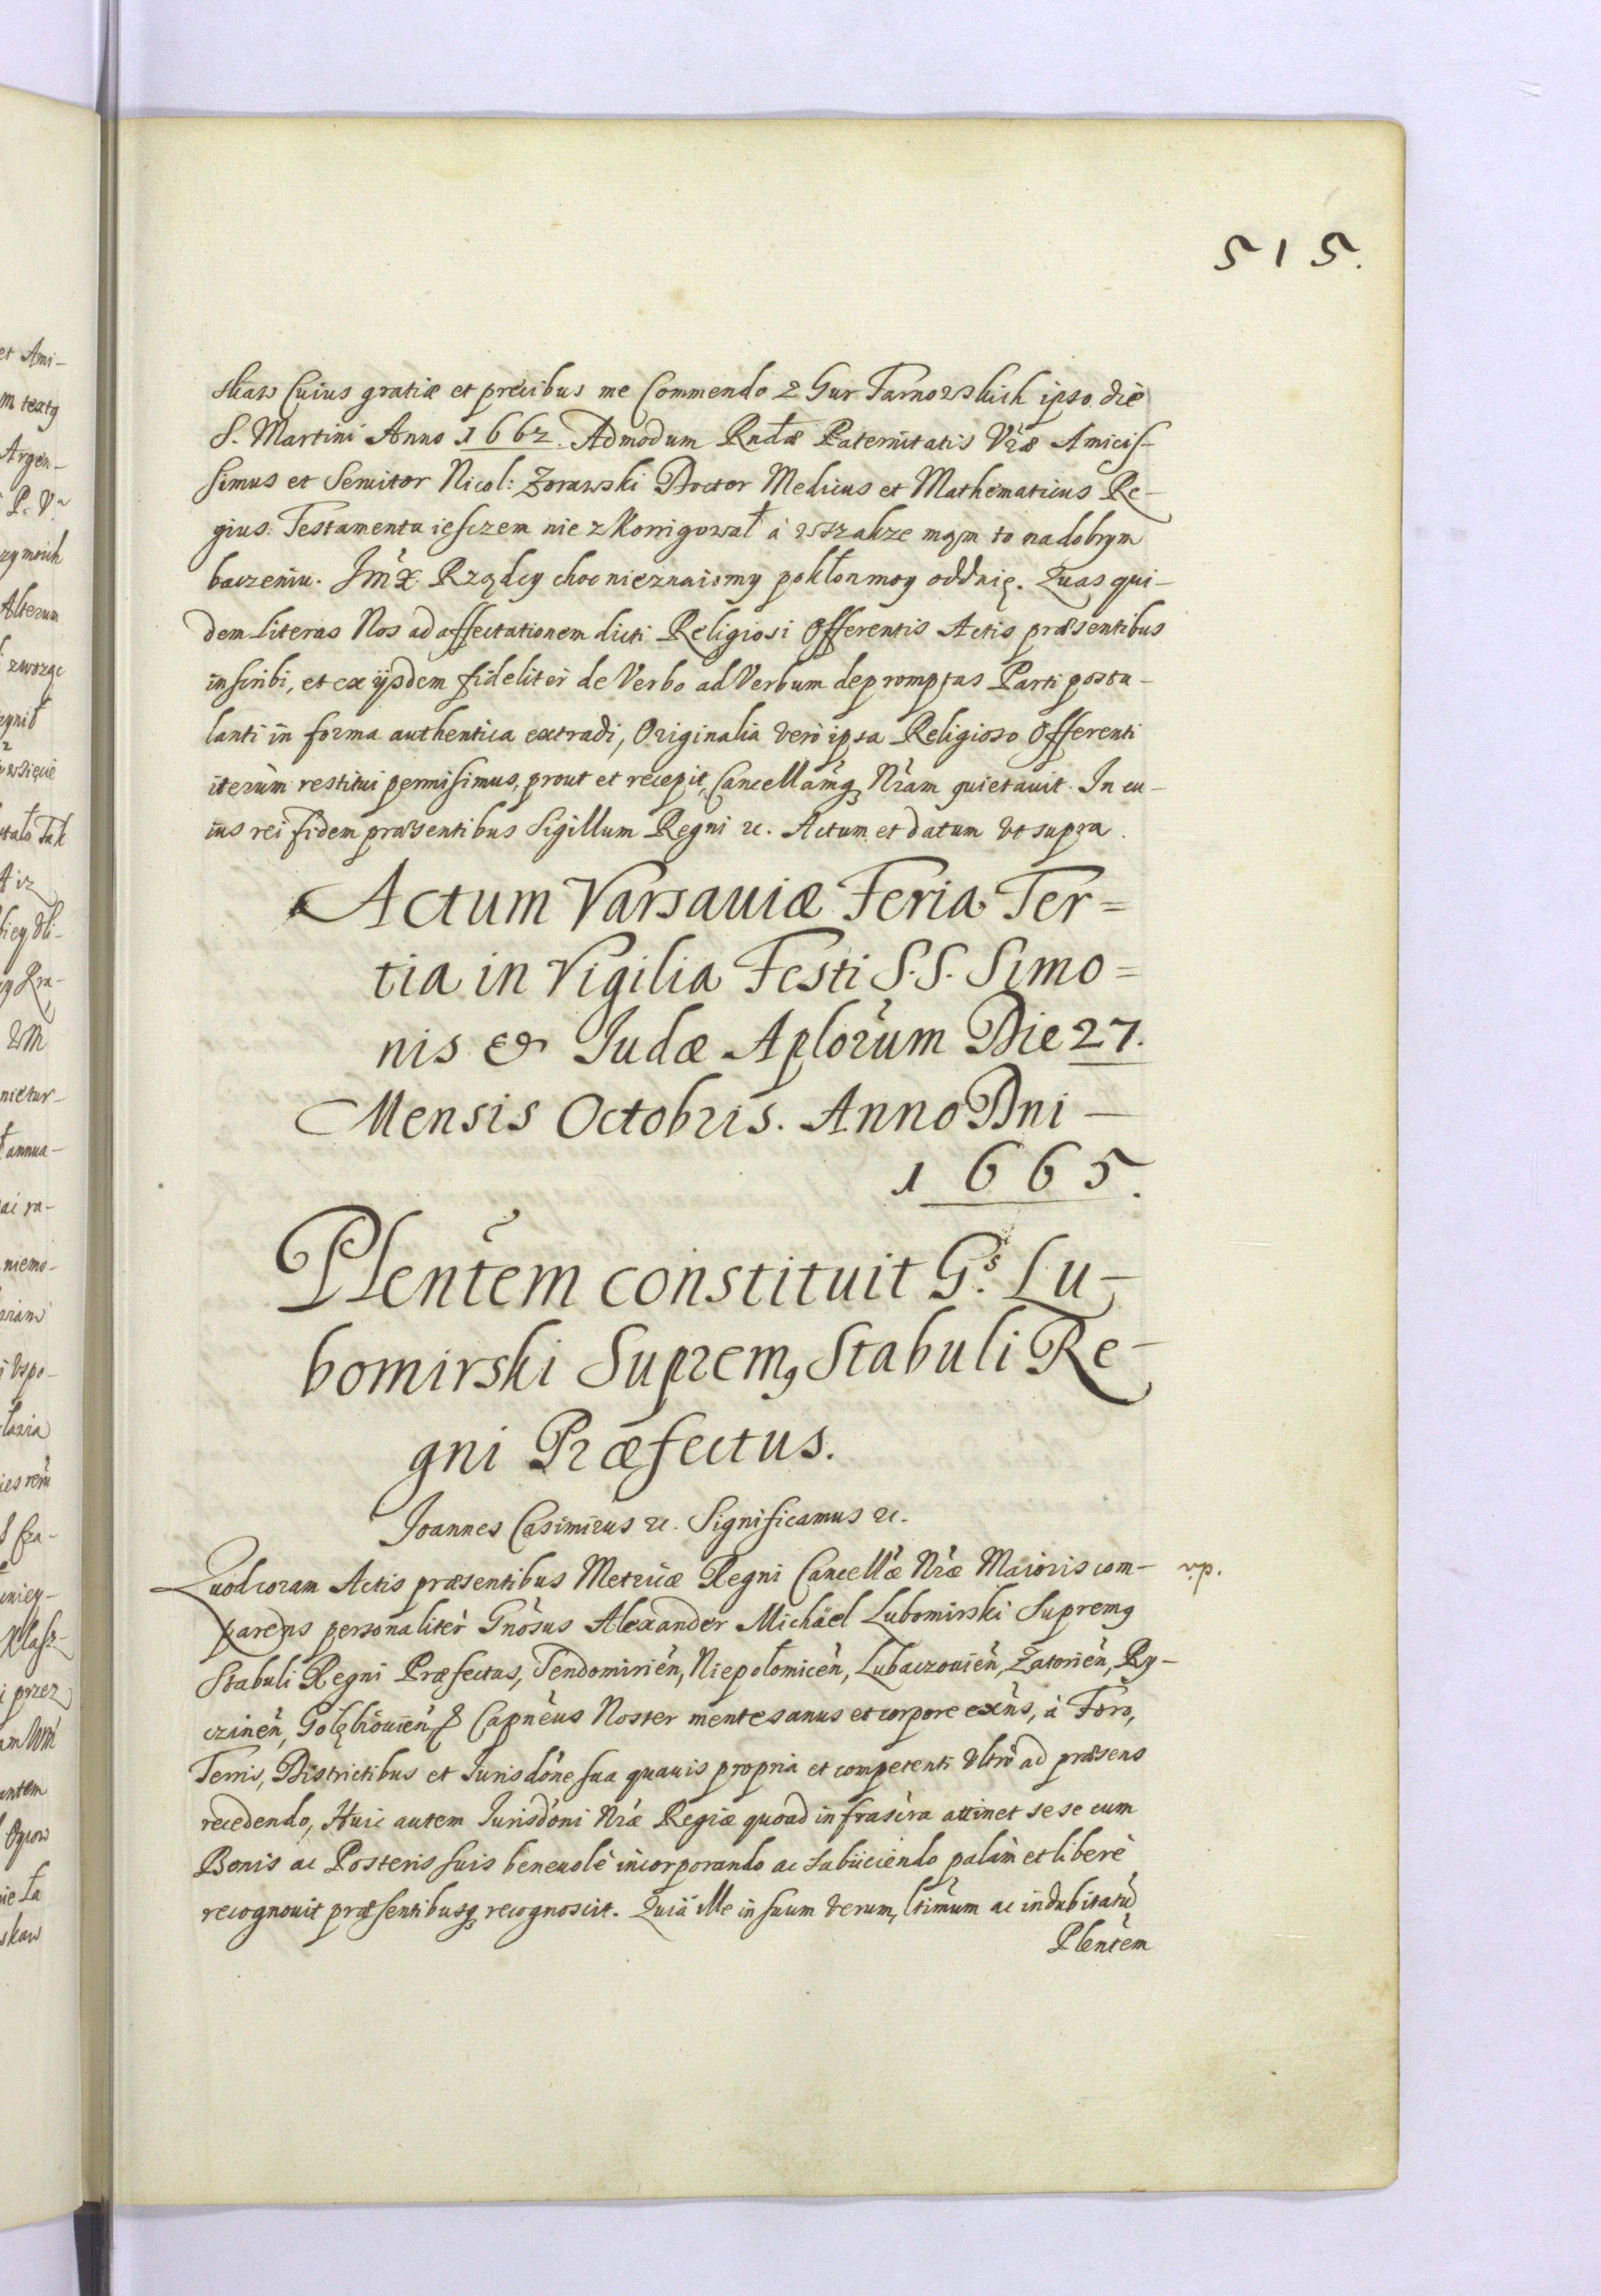 515.
skaw Cuius gratiæ et precibus me Commendo z Gur Tarnowskich ipso die
S. Martini Anno 1662. Admodum Rndæ Paternitatis Vræ Amicis-
simus et Seruitor Nicol: Zorawski Doctor Medicus et Mathematicus Re-
gius. Testamentu iesczem nie zkorrigował á wszakze mąm to na dobrym
baczeniu. Jmx Rządcy choc nieznaiomy pokłon moy oddaię. Quas qui-
dem literas Nos ad affectationem dicti Religiosi Offerentis Actis præsentibus
inscribi, et ex ijsdem fideliter de Verbo ad Verbum depromptas Parti postu-
lanti in forma authentica extradi, Originalia verò ipsa Religioso Offerenti
iterùm restitui permisimus, prout et recepit, Cancellamq Nram quietauit. In cu-
ius rei fidem præsentibus Sigillum Regni etc. Actum et datum vt supra.
Actum Varsauiæ Feria Ter=
tia in Vigilia Festi S.S. Simo=
nis & Judæ Aplorum Die 27.
Mensis Octobris. Anno Dni –
1665.
Plentem constituit Gs. Lu-
bomirski Suprem9 Stabuli Re-
gni Præfectus.
Joannes Casimirus etc. Significamus etc.
Quod coram Actis præsentibus Metricæ Regni Cancellæ Nræ Maioris com- vp.
parens personaliter Gnosus Alexander Michäel Lubomirski Suprem9
Stabuli Regni Præfectus, Sendomirien, Niepołomicen, Lubaczouien, Zatorien, Ry-
czinen, Gołębiouien & Capneus Noster mente sanus et corpore exns, à Foro,
Terris, Districtibus et Jurisdone sua quauis propria et competenti vltrò ad præsens
recedendo, Huic autem Jurisdoni Nræ Regiæ quoad infrascra attinet sese cum
Bonis ac Posteris suis beneuolè incorporando ac subijciendo palàm et liberè
recognouit præsentibusq recognoscit. Quia ille in suum verum, ltimum ac indubitatu
Plentem